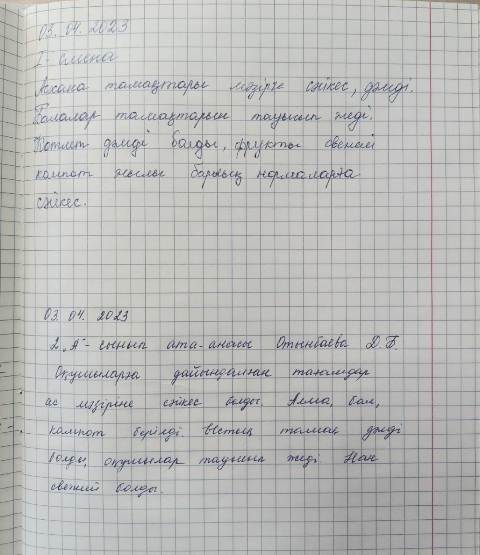 03. 04. 2023
I - смена
Асхана тамақтары мәзірге сәйкес, дәмді.
Балалар тамақтарын тауысып жеді.
Котлет дәмді болды, фрукты свежий
компот жылы барлық нормаларға
сәйкес.
03. 04. 2023
2 "А" - сынып ата-анасы Отынбаева Д. Б.
Оқушыларға дайындалған тағамдар
ас мәзіріне сәйкес болды. Алма, бал,
компот берілді. Ыстық тамақ дәмді
болды, оқушылар тауысып жеді. Нан
свежий болды.